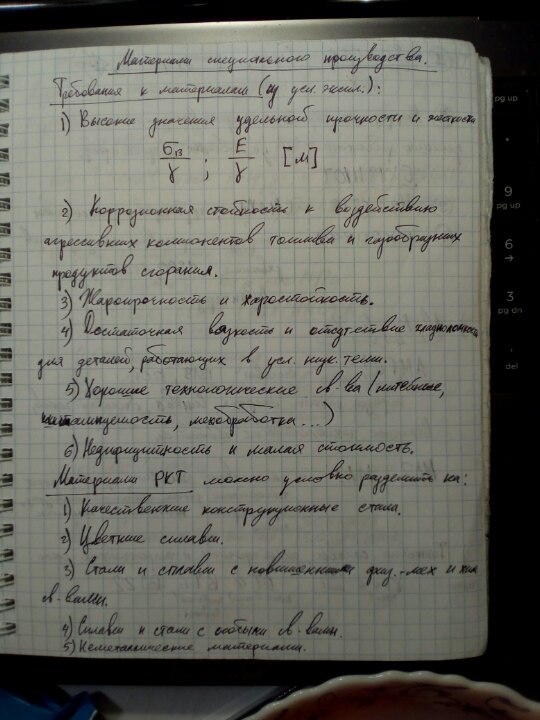 Материалы специального производства.
Требования к материалам (из усл. экспл.):
1) Высокие значения удельной прочности и жёсткости
σв/γ ; E/γ [м]
2) Коррозионная стойкость к воздействию
агрессивных компонентов топлива и газообразных
продуктов сгорания.
3) Жаропрочность и жаростойкость.
4) Достаточная вязкость и отсутствие хладноломкости
для деталей, работающих в усл. низк. темп.
5) Хорошие технологические св-ва (литейные,
штампуемость, мехобработка...)
6) Недифицитность и малая стоимость.
Материалы РКТ можно условно разделить на:
1) Качественные конструкционные стали.
2) Цветные сплавы.
3) Стали и сплавы с повышенными физ.-мех и хим
св-вами.
4) Сплавы и стали с особыми св-вами.
5) Неметаллические материалы.
pg up
pg up
9
pg up
6
→
3
pg dn
del